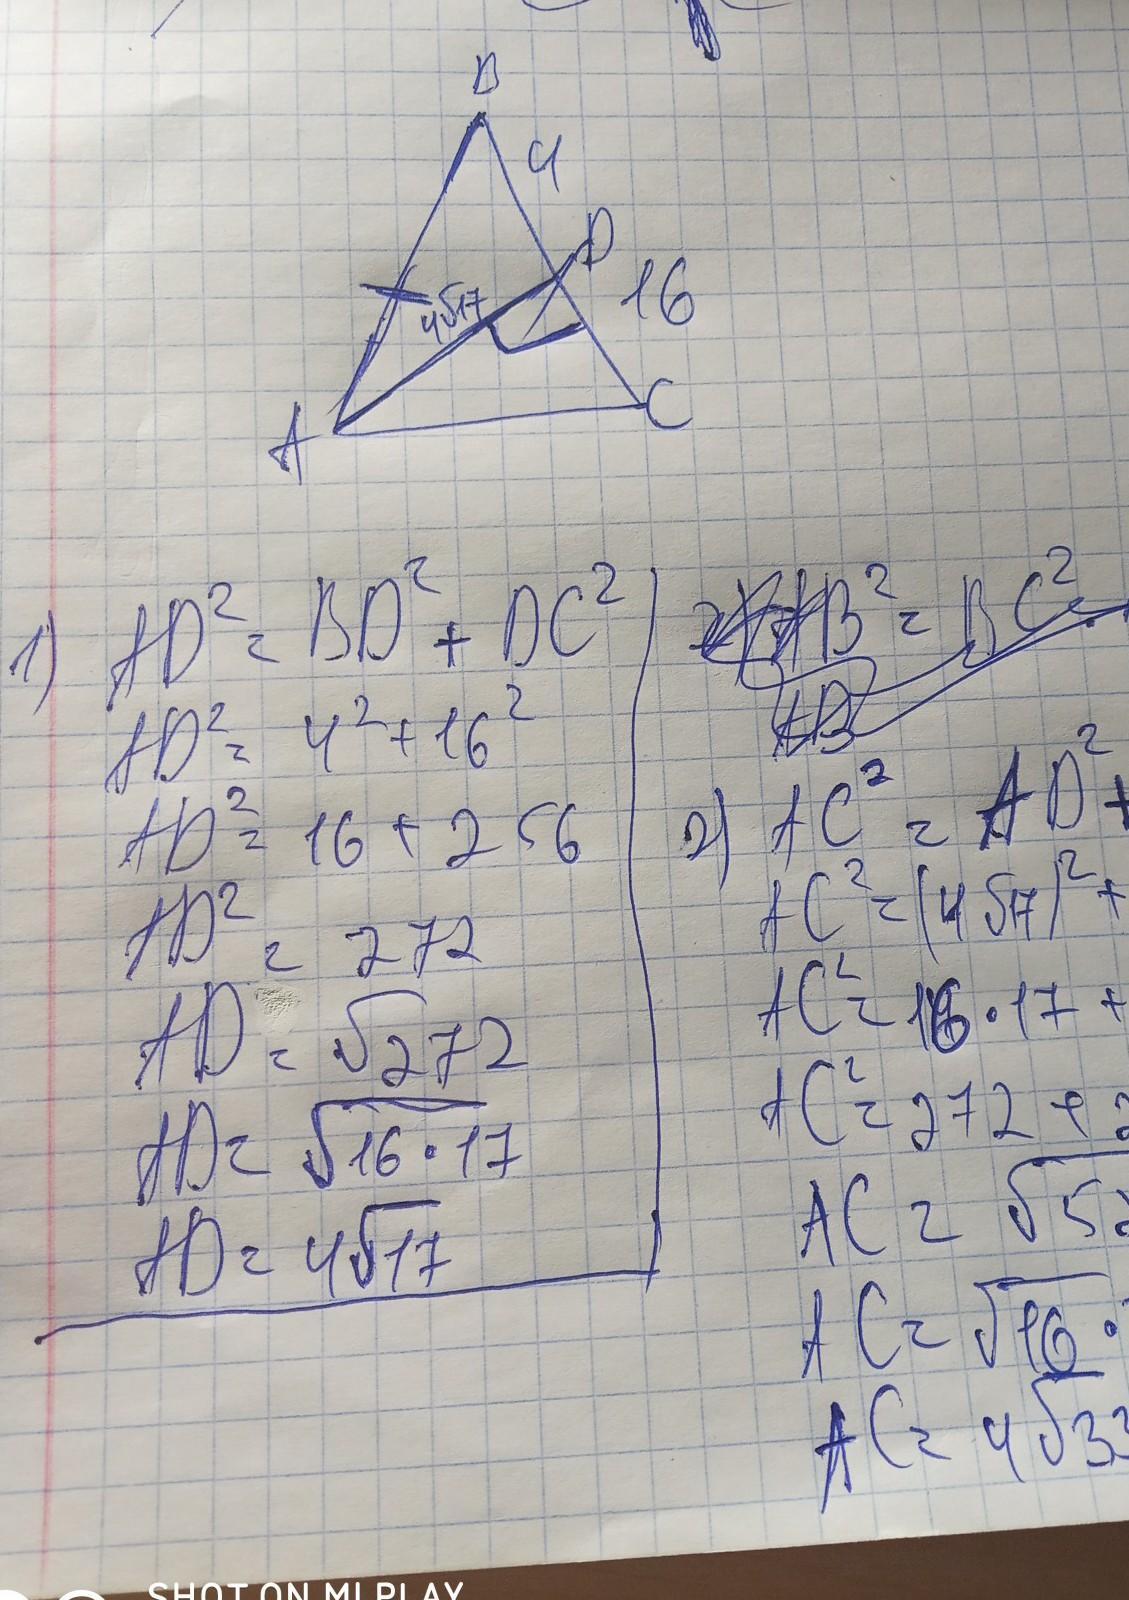 B
4
D
16
4√17
A
C
1) AD² = BD² + DC²
AD² = 4² + 16²
AD² = 16 + 256
AD² = 272
AD = √272
AD = √16·17
AD = 4√17
AB² = BC²
AB
2) AC² = AD² +
AC² = (4√17)² +
AC² = 16·17 +
AC² = 272 + 2
AC = √52
AC = √16·
AC = 4√33
SHOT ON MI PLAY